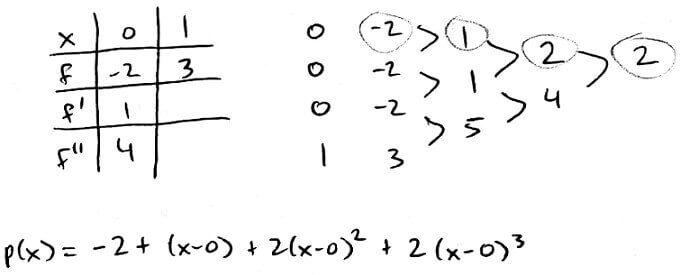 x 0 1
f -2 3
f' 1
f'' 4
0 -2 1 2 2
0 -2 1 4
0 -2 5
1 3
p(x) = -2 + (x-0) + 2(x-0)² + 2(x-0)³